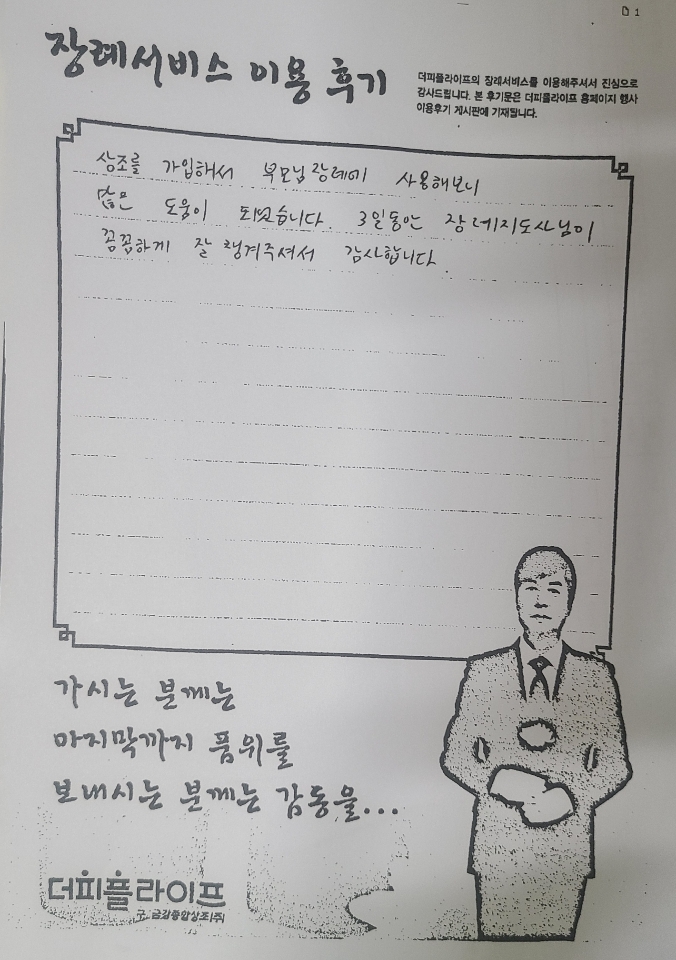 1
장례서비스 이용 후기
더피플라이프의 장례서비스를 이용해주셔서 진심으로
감사드립니다. 본 후기문은 더피플라이프 홈페이지 행사
이용후기 게시판에 기재됩니다.
상조를 가입해서 부모님 장례에 사용해보니
많은 도움이 되었습니다. 3일동안 장례지도사님이
꼼꼼하게 잘 챙겨주셔서 감사합니다.
가시는 분께는
마지막까지 품위를
보내시는 분께는 감동을...
더피플라이프
구. 금강종합상조(주)